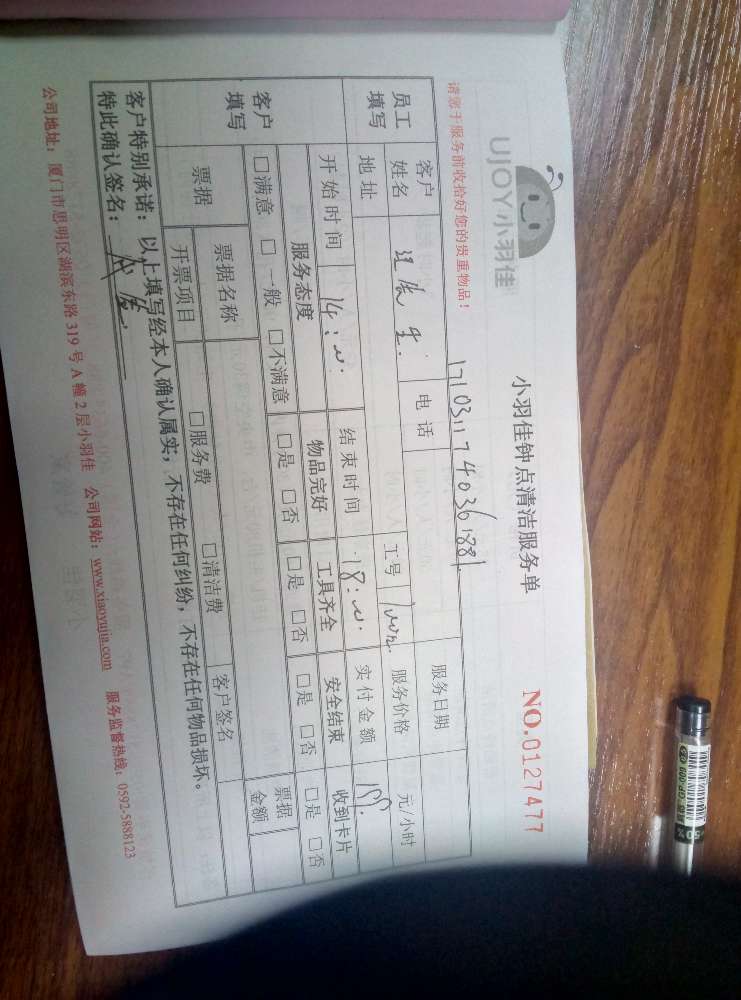 UJOY小羽佳
小羽佳钟点清洁服务单
NO.0127477
请您于服务前收拾好您的贵重物品!
1710311740361881
员工填写 客户姓名 电话 工号 服务日期
服务价格 元/小时
地址
开始时间 14: 结束时间 18: 实付金额
客户填写 服务态度 物品完好 工具齐全 安全结束 收到卡片
□满意 □一般 □不满意 □是 □否 □是 □否 □是 □否 □是 □否
票据 票据名称 □服务费 □清洁费 客户签名 票据金额
开票项目
客户特别承诺:以上填写经本人确认属实,不存在任何纠纷,不存在任何物品损坏。
特此确认签名:
公司地址:厦门市思明区湖滨东路319号A幢2层小羽佳 公司网站:www.xiaoyujia.com 服务监督热线:0592-5888123